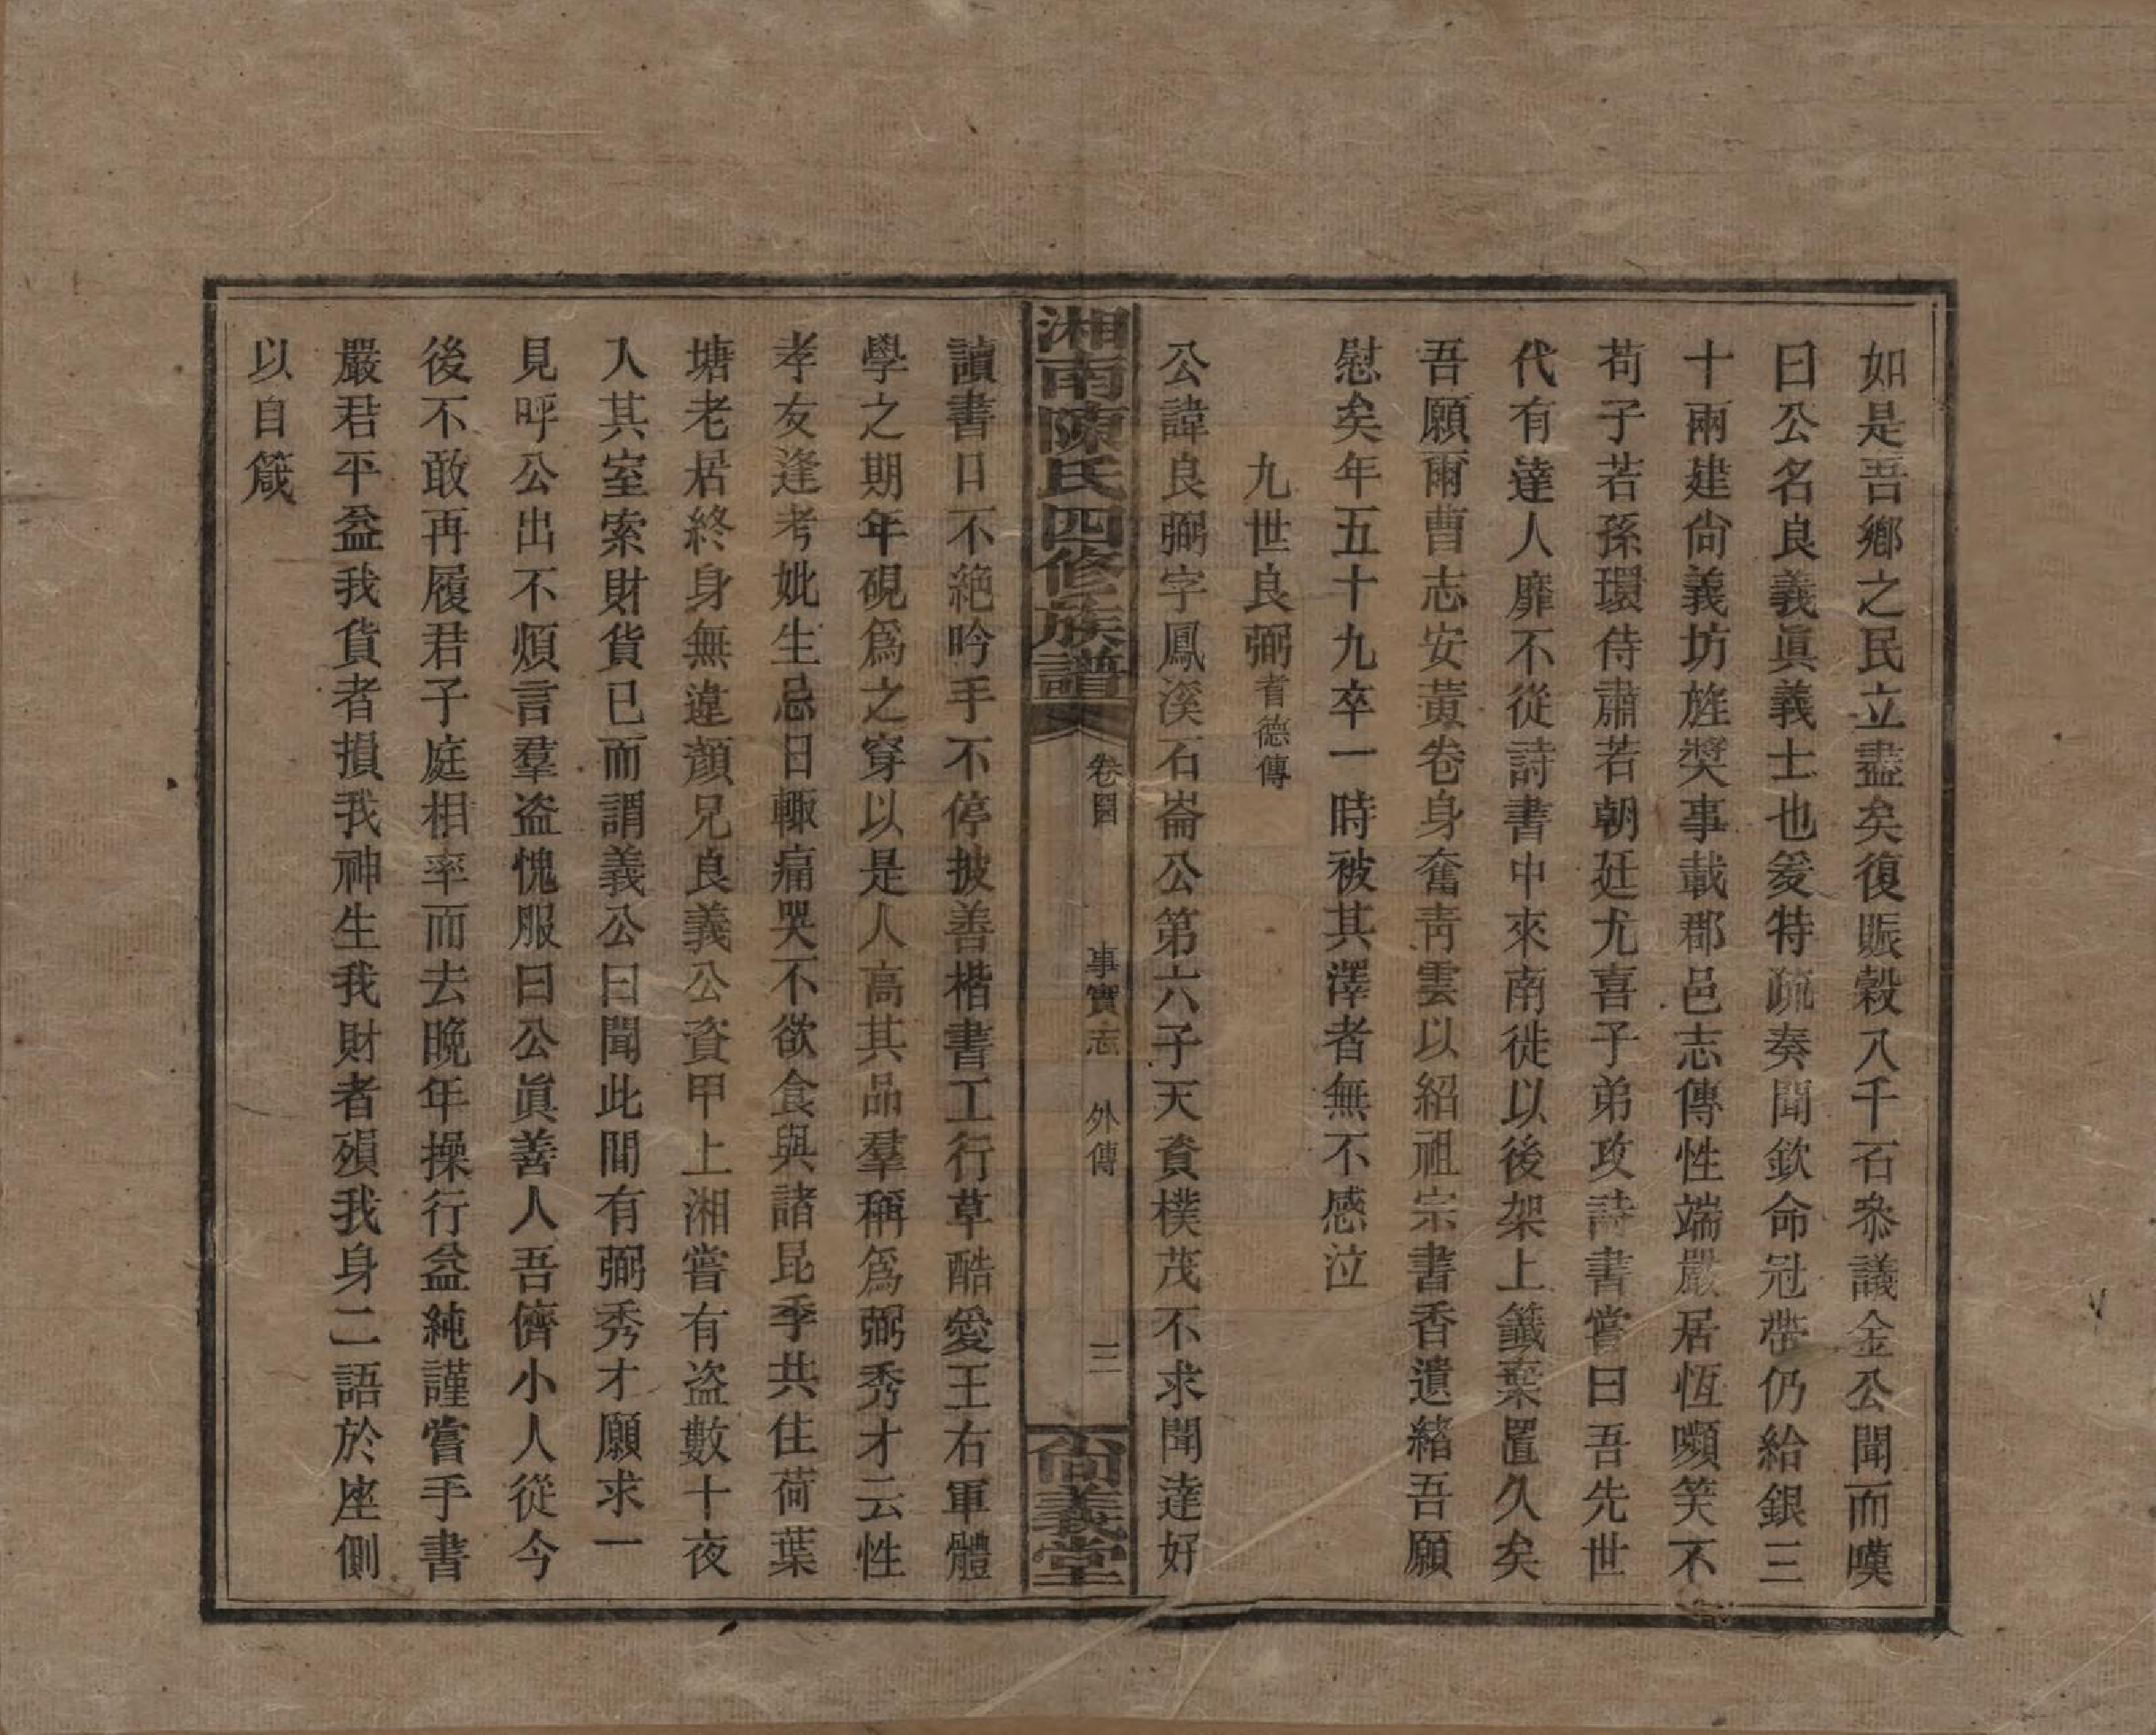 如是吾鄉之民立盡矣復賑穀八千石叅議金公聞而嘆
曰公名良義眞義士也爰特疏奏聞欽命冠帶仍給銀三
十兩建尙義坊旌奬事載郡邑志傳性端嚴居恆嚬笑不
苟子若孫環侍肅若朝廷尤喜子弟攻詩書嘗曰吾先世
代有達人靡不從詩書中來南徙以後架上籤棄置久矣
吾願爾曹志安黃卷身奮靑雲以紹祖宗書香遺緖吾願
慰矣年五十九卒一時被其澤者無不感泣
九世良弼耆德傳
公諱良弼字鳳溪石崙公第六子天資樸茂不求聞達好
湘南陳氏四修族譜
卷四
事實志
外傳
三
尙義堂
讀書日不絕吟手不停披善楷書工行草酷愛王右軍體
學之期年硯爲之穿以是人高其品羣稱爲弼秀才云性
孝友逢考妣生忌日輙痛哭不欲食與諸昆季共住荷葉
塘老居終身無違顏兄良義公資甲上湘嘗有盜數十夜
入其室索財貨已而謂義公曰聞此間有弼秀才願求一
見呼公出不煩言羣盜愧服曰公眞善人吾儕小人從今
後不敢再履君子庭相率而去晚年操行益純謹嘗手書
嚴君平益我貨者損我神生我財者殞我身二語於座側
以自箴